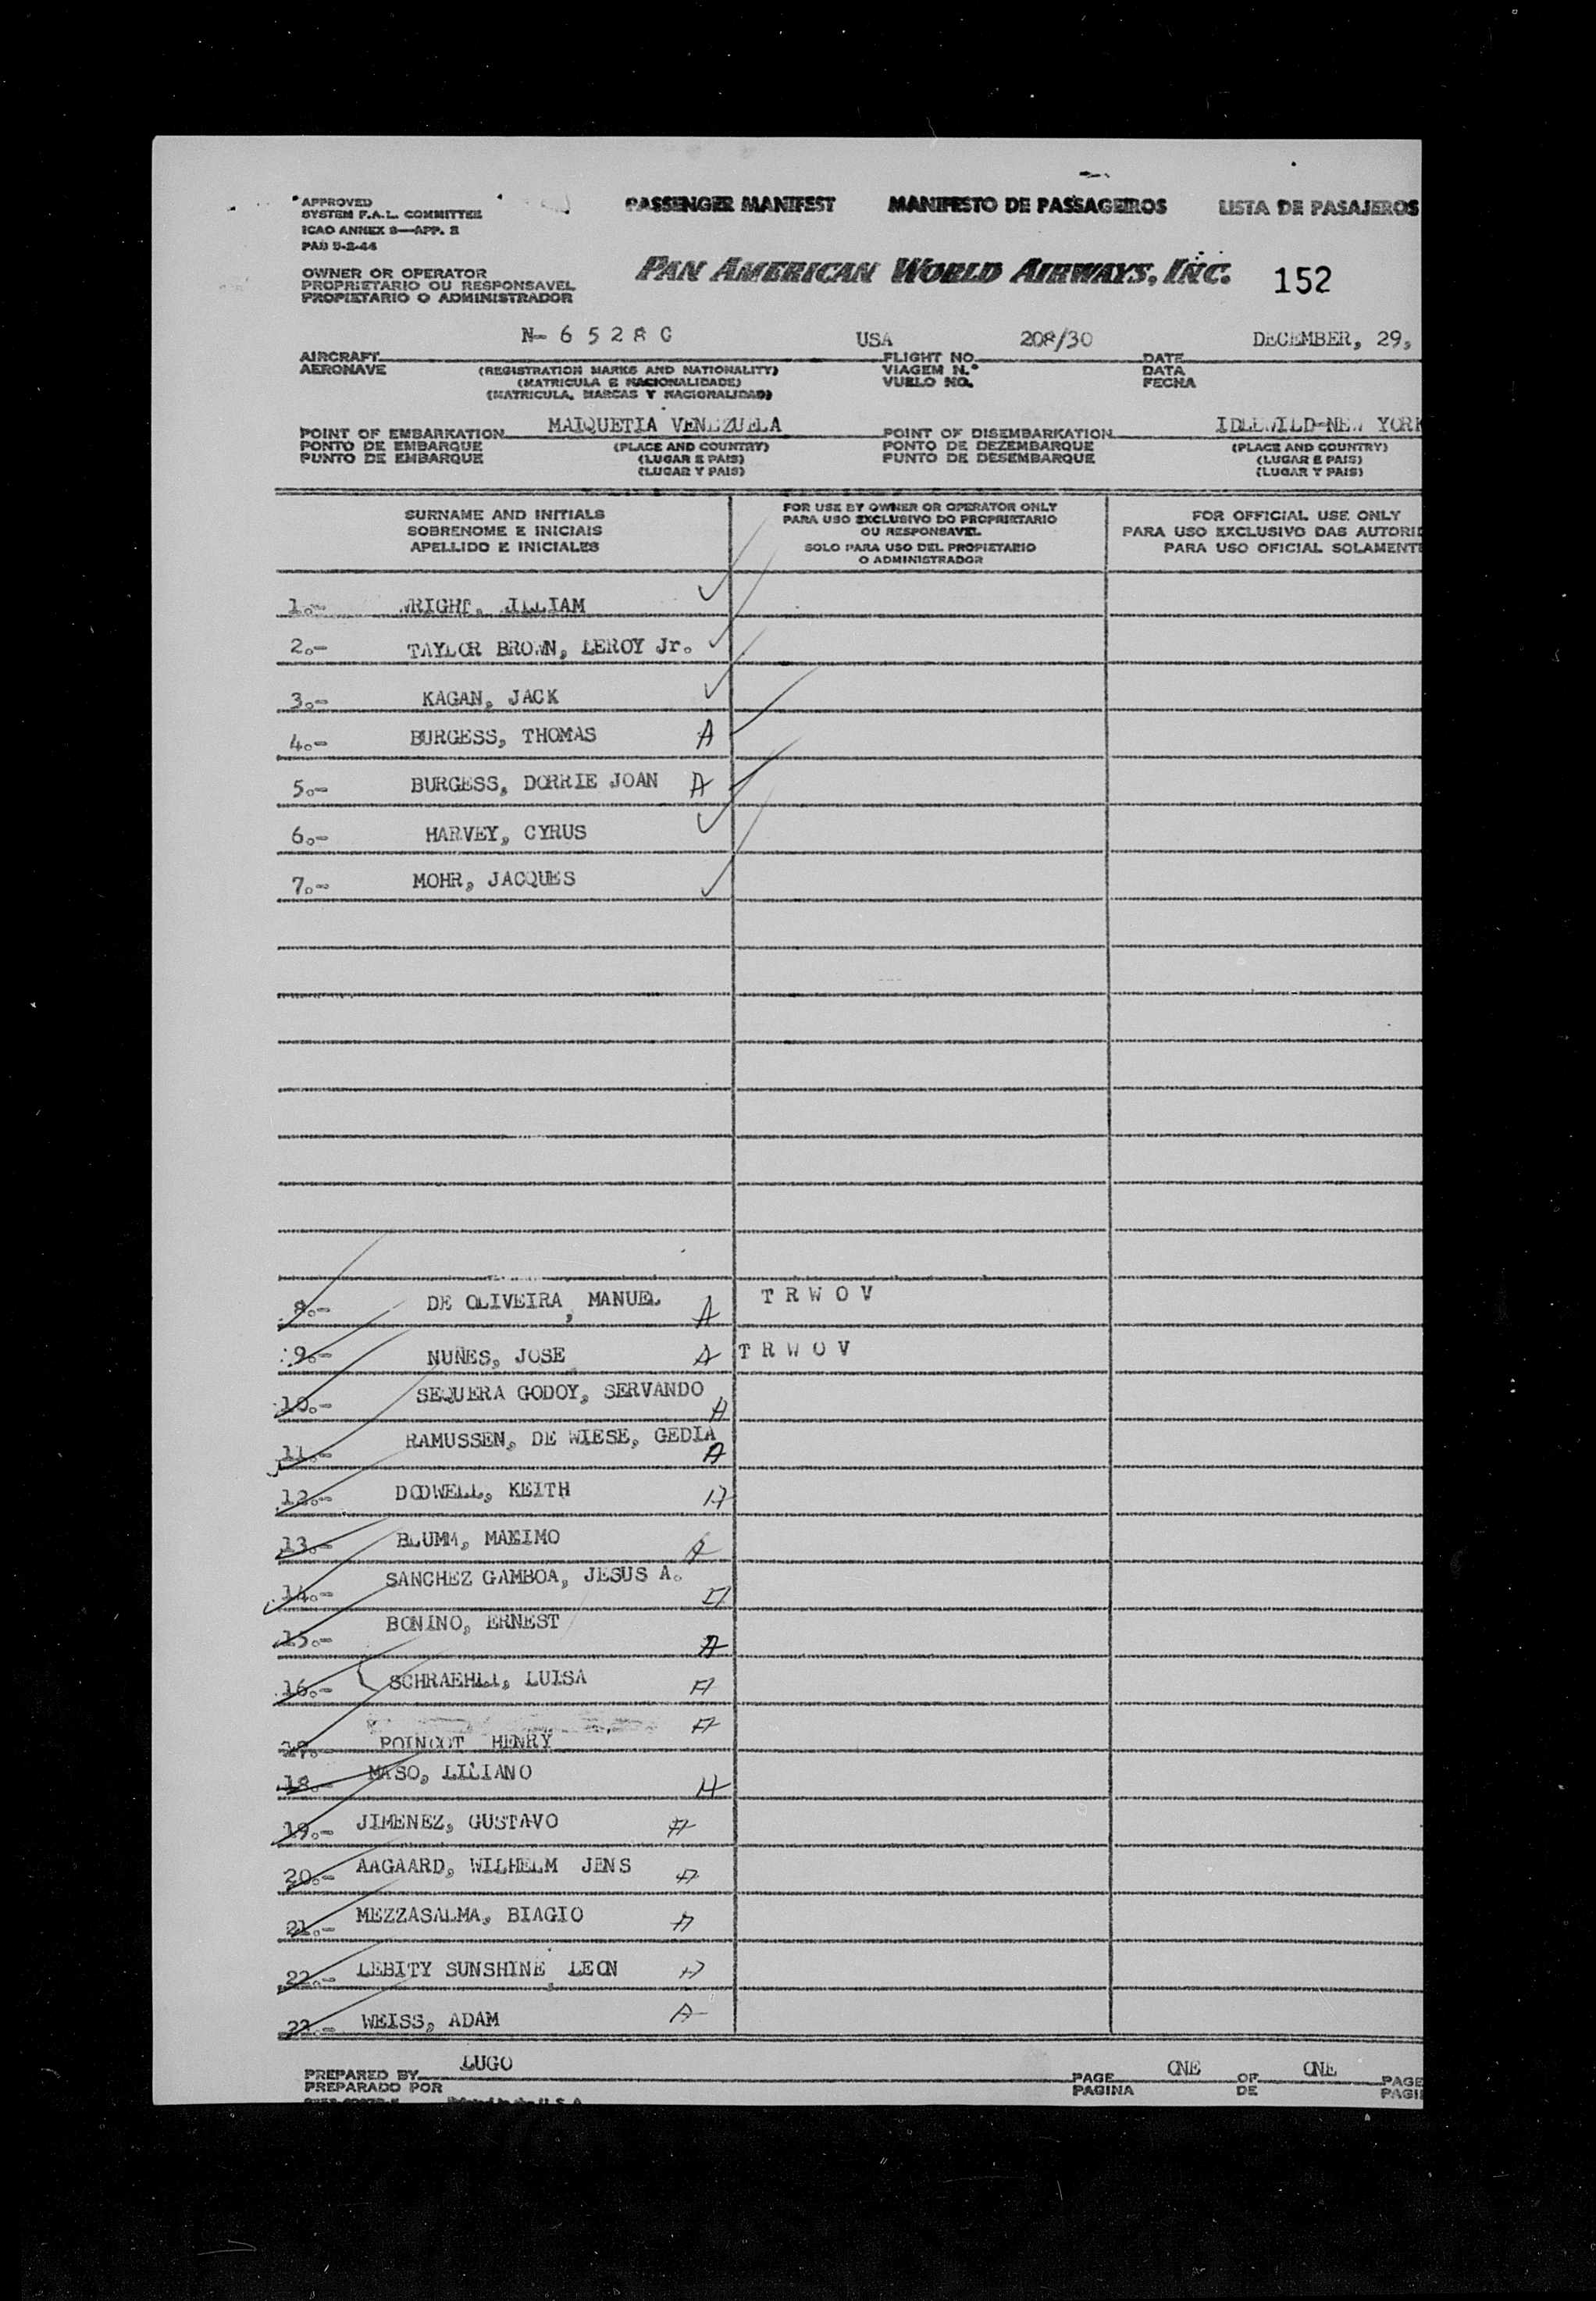 APPROVED
SYSTEM F.A.L. COMMITTEE
ICAO ANNEX 9—APP. 2
PAD 5-2-44
PASSENGER MANIFEST MANIFESTO DE PASSAGEIROS LISTA DE PASAJEROS
OWNER OR OPERATOR
PROPRIETARIO OU RESPONSAVEL
PROPIETARIO O ADMINISTRADOR
PAN AMERICAN WORLD AIRWAYS, INC. 152
N- 6 5 2 8 C USA 208/30 DECEMBER, 29,
AIRCRAFT FLIGHT NO. DATE
AERONAVE (REGISTRATION MARKS AND NATIONALITY) VIAGEM N.° DATA
(MATRICULA E NACIONALIDADE) VUELO NO. FECHA
(MATRICULA, MARCAS Y NACIONALIDAD)
MAIQUETIA VENEZUELA IDLEWILD-NEW YORK
POINT OF EMBARKATION POINT OF DISEMBARKATION
PONTO DE EMBARQUE (PLACE AND COUNTRY) PONTO DE DEZEMBARQUE (PLACE AND COUNTRY)
PUNTO DE EMBARQUE (LUGAR E PAIS) PUNTO DE DESEMBARQUE (LUGAR E PAIS)
(LUGAR Y PAIS) (LUGAR Y PAIS)
SURNAME AND INITIALS
SOBRENOME E INICIAIS
APELLIDO E INICIALES
FOR USE BY OWNER OR OPERATOR ONLY
PARA USO EXCLUSIVO DO PROPRIETARIO
OU RESPONSAVEL
SOLO PARA USO DEL PROPIETARIO
O ADMINISTRADOR
FOR OFFICIAL USE ONLY
PARA USO EXCLUSIVO DAS AUTORID
PARA USO OFICIAL SOLAMENTE
1.- WRIGHT, WILLIAM
2.- TAYLOR BROWN, LEROY Jr.
3.- KAGAN, JACK
4.- BURGESS, THOMAS A
5.- BURGESS, DORRIE JOAN A
6.- HARVEY, CYRUS
7.- MOHR, JACQUES
8.- DE OLIVEIRA, MANUEL A T R W O V
9.- NUÑES, JOSE A T R W O V
10.- SEQUERA GODOY, SERVANDO A
11.- RAMUSSEN, DE WIESE, GEDIA A
12.- DODWELL, KEITH A
13.- BLUMM, MAXIMO A
14.- SANCHEZ GAMBOA, JESUS A. A
15.- BONINO, ERNEST A
16.- SCHRAEHLI, LUISA A
17.- POINCOT HENRY A
18.- MASO, LILIANO A
19.- JIMENEZ, GUSTAVO A
20.- AAGAARD, WILHELM JENS A
21.- MEZZASALMA, BIAGIO A
22.- LEBITY SUNSHINE, LEON A
23.- WEISS, ADAM A
PREPARED BY LUGO PAGE ONE OF ONE PAGE
PREPARADO POR PAGINA DE PAGI